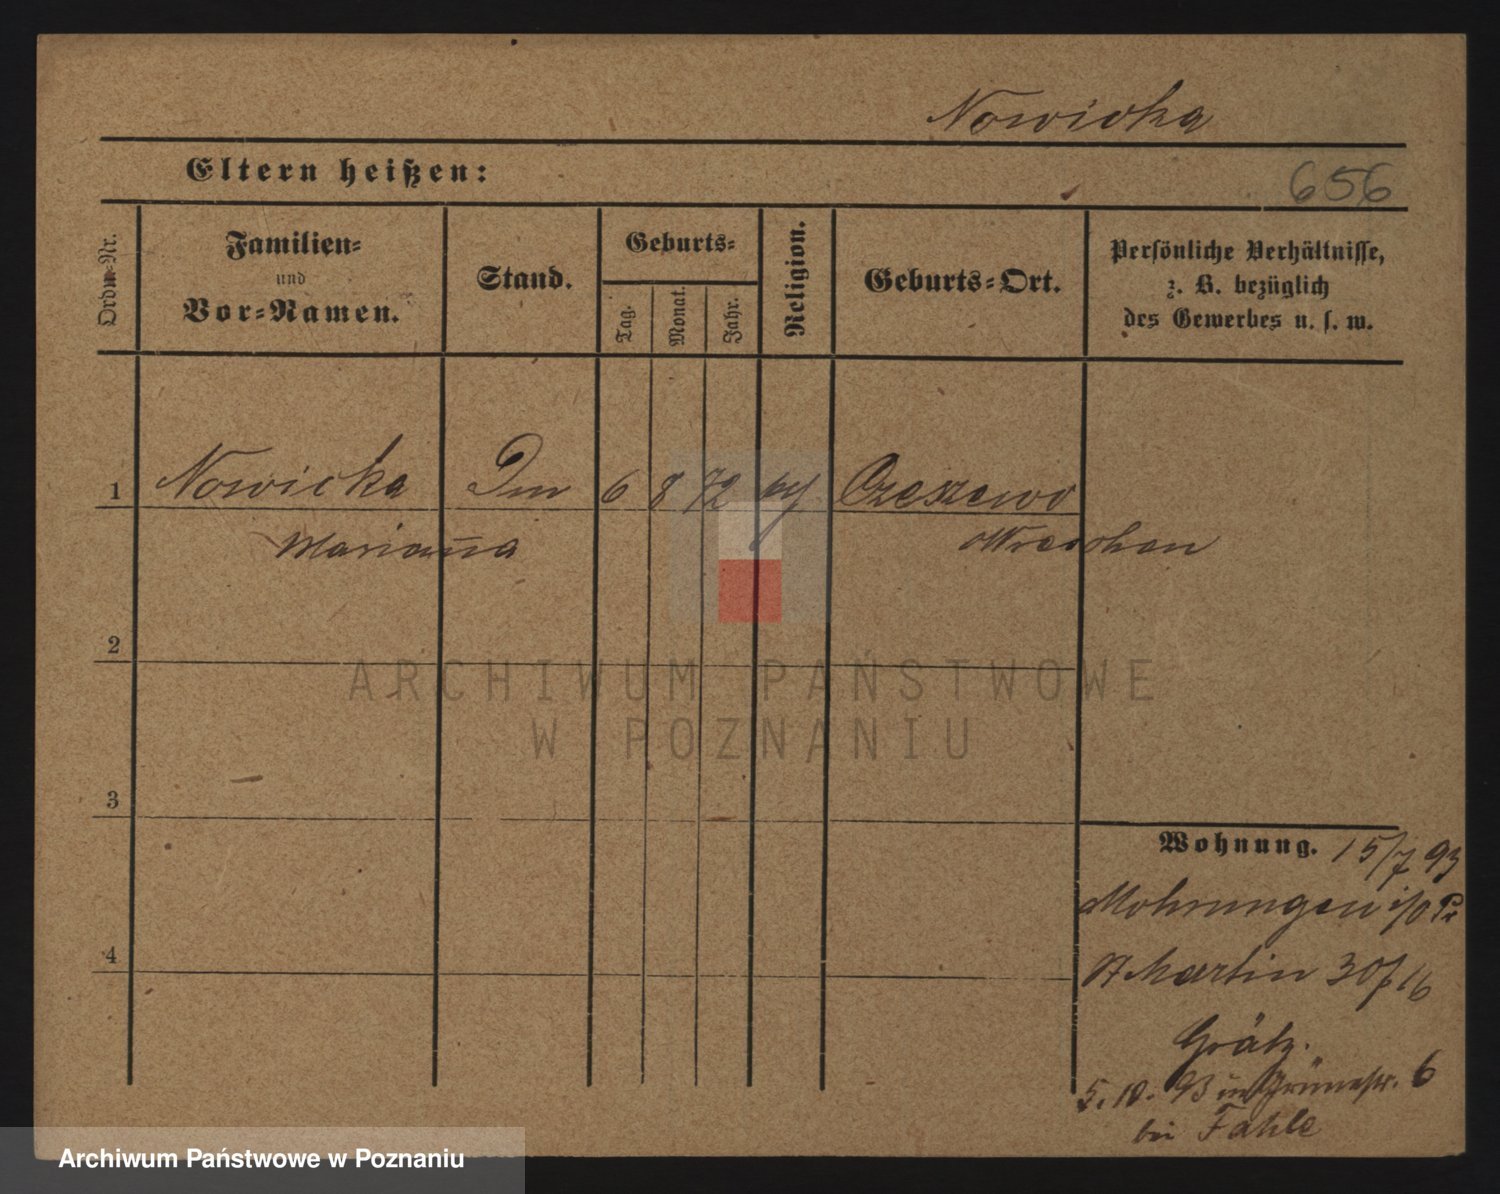 Nowicka
Eltern heißen:
656
Ordn-Nr.
Familien-
und
Vor-Namen.
Stand.
Geburts-
Tag.
Monat.
Jahr.
Religion.
Geburts-Ort.
Persönliche Verhältnisse,
z. B. bezüglich
des Gewerbes u. s. w.
1 Nowicka 6 8 72 Czeszewo
Marianna Wreschen
2
3
4
Wohnung. 15/7 93
Mohrungen i/O Pr
St Martin 30
Grätz.
5. 10. 93 Grünestr. 6
bei Fahle
ARCHIWUM PAŃSTWOWE
W POZNANIU
Archiwum Państwowe w Poznaniu